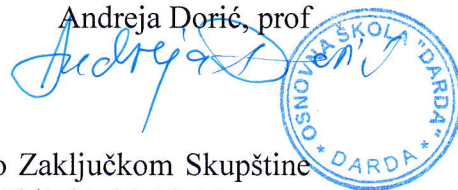 Andreja Dorić, prof
Andreja Dorić
OSNOVNA ŠKOLA "DARDA"
* DARDA *
o Zaključkom Skupštine